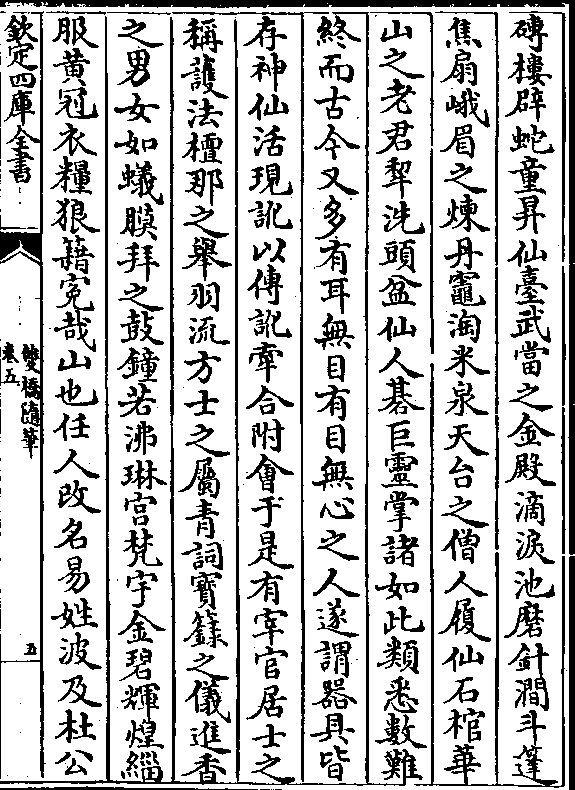 磚樓辟蛇童昇仙臺武當之金殿滴淚池磨針澗斗篷
焦扇峨眉之煉丹竈淘米泉天台之僧人履仙石棺華
山之老君犂洗頭盆仙人碁巨靈掌諸如此類悉數難
終而古今又多有耳無目有目無心之人遂謂器具皆
存神仙活現訛以傳訛牽合附會于是有宰官居士之
稱護法檀那之舉羽流方士之屬青詞寶籙之儀進香
之男女如蟻膜拜之鼓鐘若沸琳宮梵宇金碧輝煌緇
服黄冠衣糧狼籍寃哉山也任人改名易姓波及杜公
欽定四庫全書
雙橋隨筆
卷五
五